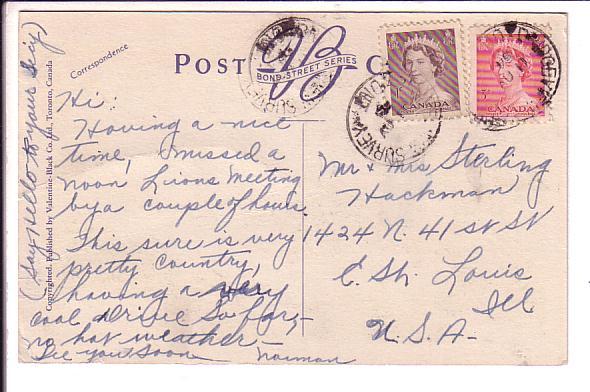 Correspondence
POST C
VB
BOND-STREET SERIES
CANADA
CANADA
Hi
Having a nice
time, missed a
noon Lions Meeting
by a couple of hours.
This sure is very
pretty country,
having a very
cool drive so far,-
no hot weather-
See you soon Norman
(Say Hello to your Guy)
Copyrighted. Published by Valentine-Black Co. Ltd., Toronto, Canada
Mr & Mrs Sterling
Hackman
1424 N. 41 st St
E. St. Louis
Ill
U.S.A-